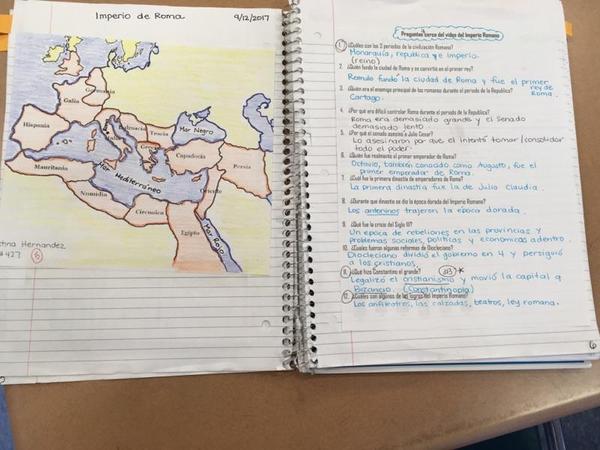 Imperio de Roma 9/12/2017
Germania
Galia
Hispania
Dalmacia
Tracia
Mar Negro
Grecia
Capadocia
Mauritania
Mar Mediterráneo
Persia
Numidia
Oriente
Cirenaica
Egipto
Mar Rojo
stina Hernandez
#427 6
Preguntas cerca del video del Imperio Romano
1. ¿Cuáles son los 3 periodos de la civilización Romana?
Monarquía, republica y e imperio.
(reino)
2. ¿Quién fundo la ciudad de Roma y se convirtió en el primer rey?
Romulo fundó la ciudad de Roma y fue el primer
rey de
Roma.
3. ¿Quién era el enemigo principal de los romanos durante el periodo de la Republica?
Cartago.
4. ¿Por qué era difícil controlar Roma durante el periodo de la Republica?
Roma era demasiado grande y el Senado
demasiado lento
5. ¿Por qué el senado asesinó a Julio Cesar?
Lo asesinaron por que el intentó tomar/consolidar
todo el poder.
6. ¿Quién fue realmente el primer emperador de Roma?
Octavio, también conocido como Augusto, fue el
primer emperador de Roma.
7. ¿Cuál fue la primera dinastía de emperadores de Roma?
La primera dinastía fue la de Julio Claudia.
8. ¿Durante que dinastía se dio la época dorada del Imperio Romano?
Los antoninos trajeron la época dorada.
9. ¿Qué fue la crisis del Siglo III?
Un epoca de rebeliones en las provincias y
problemas sociales, politicas y economicas adentro.
10. ¿Cuáles fueron algunas reformas de Diocleciano?
Diocleciano dividió el gobierno en 4 y persiguió
a los cristianos.
11. ¿Qué hizo Constantino el grande? 313 *
Legalizó el cristianismo y movió la capital a
Bizancio. (Constantinopla)
12. ¿Cuáles son algunos de los logros del Imperio Romano?
Los anfiteatros, las calzadas, teatros, ley romana.
6